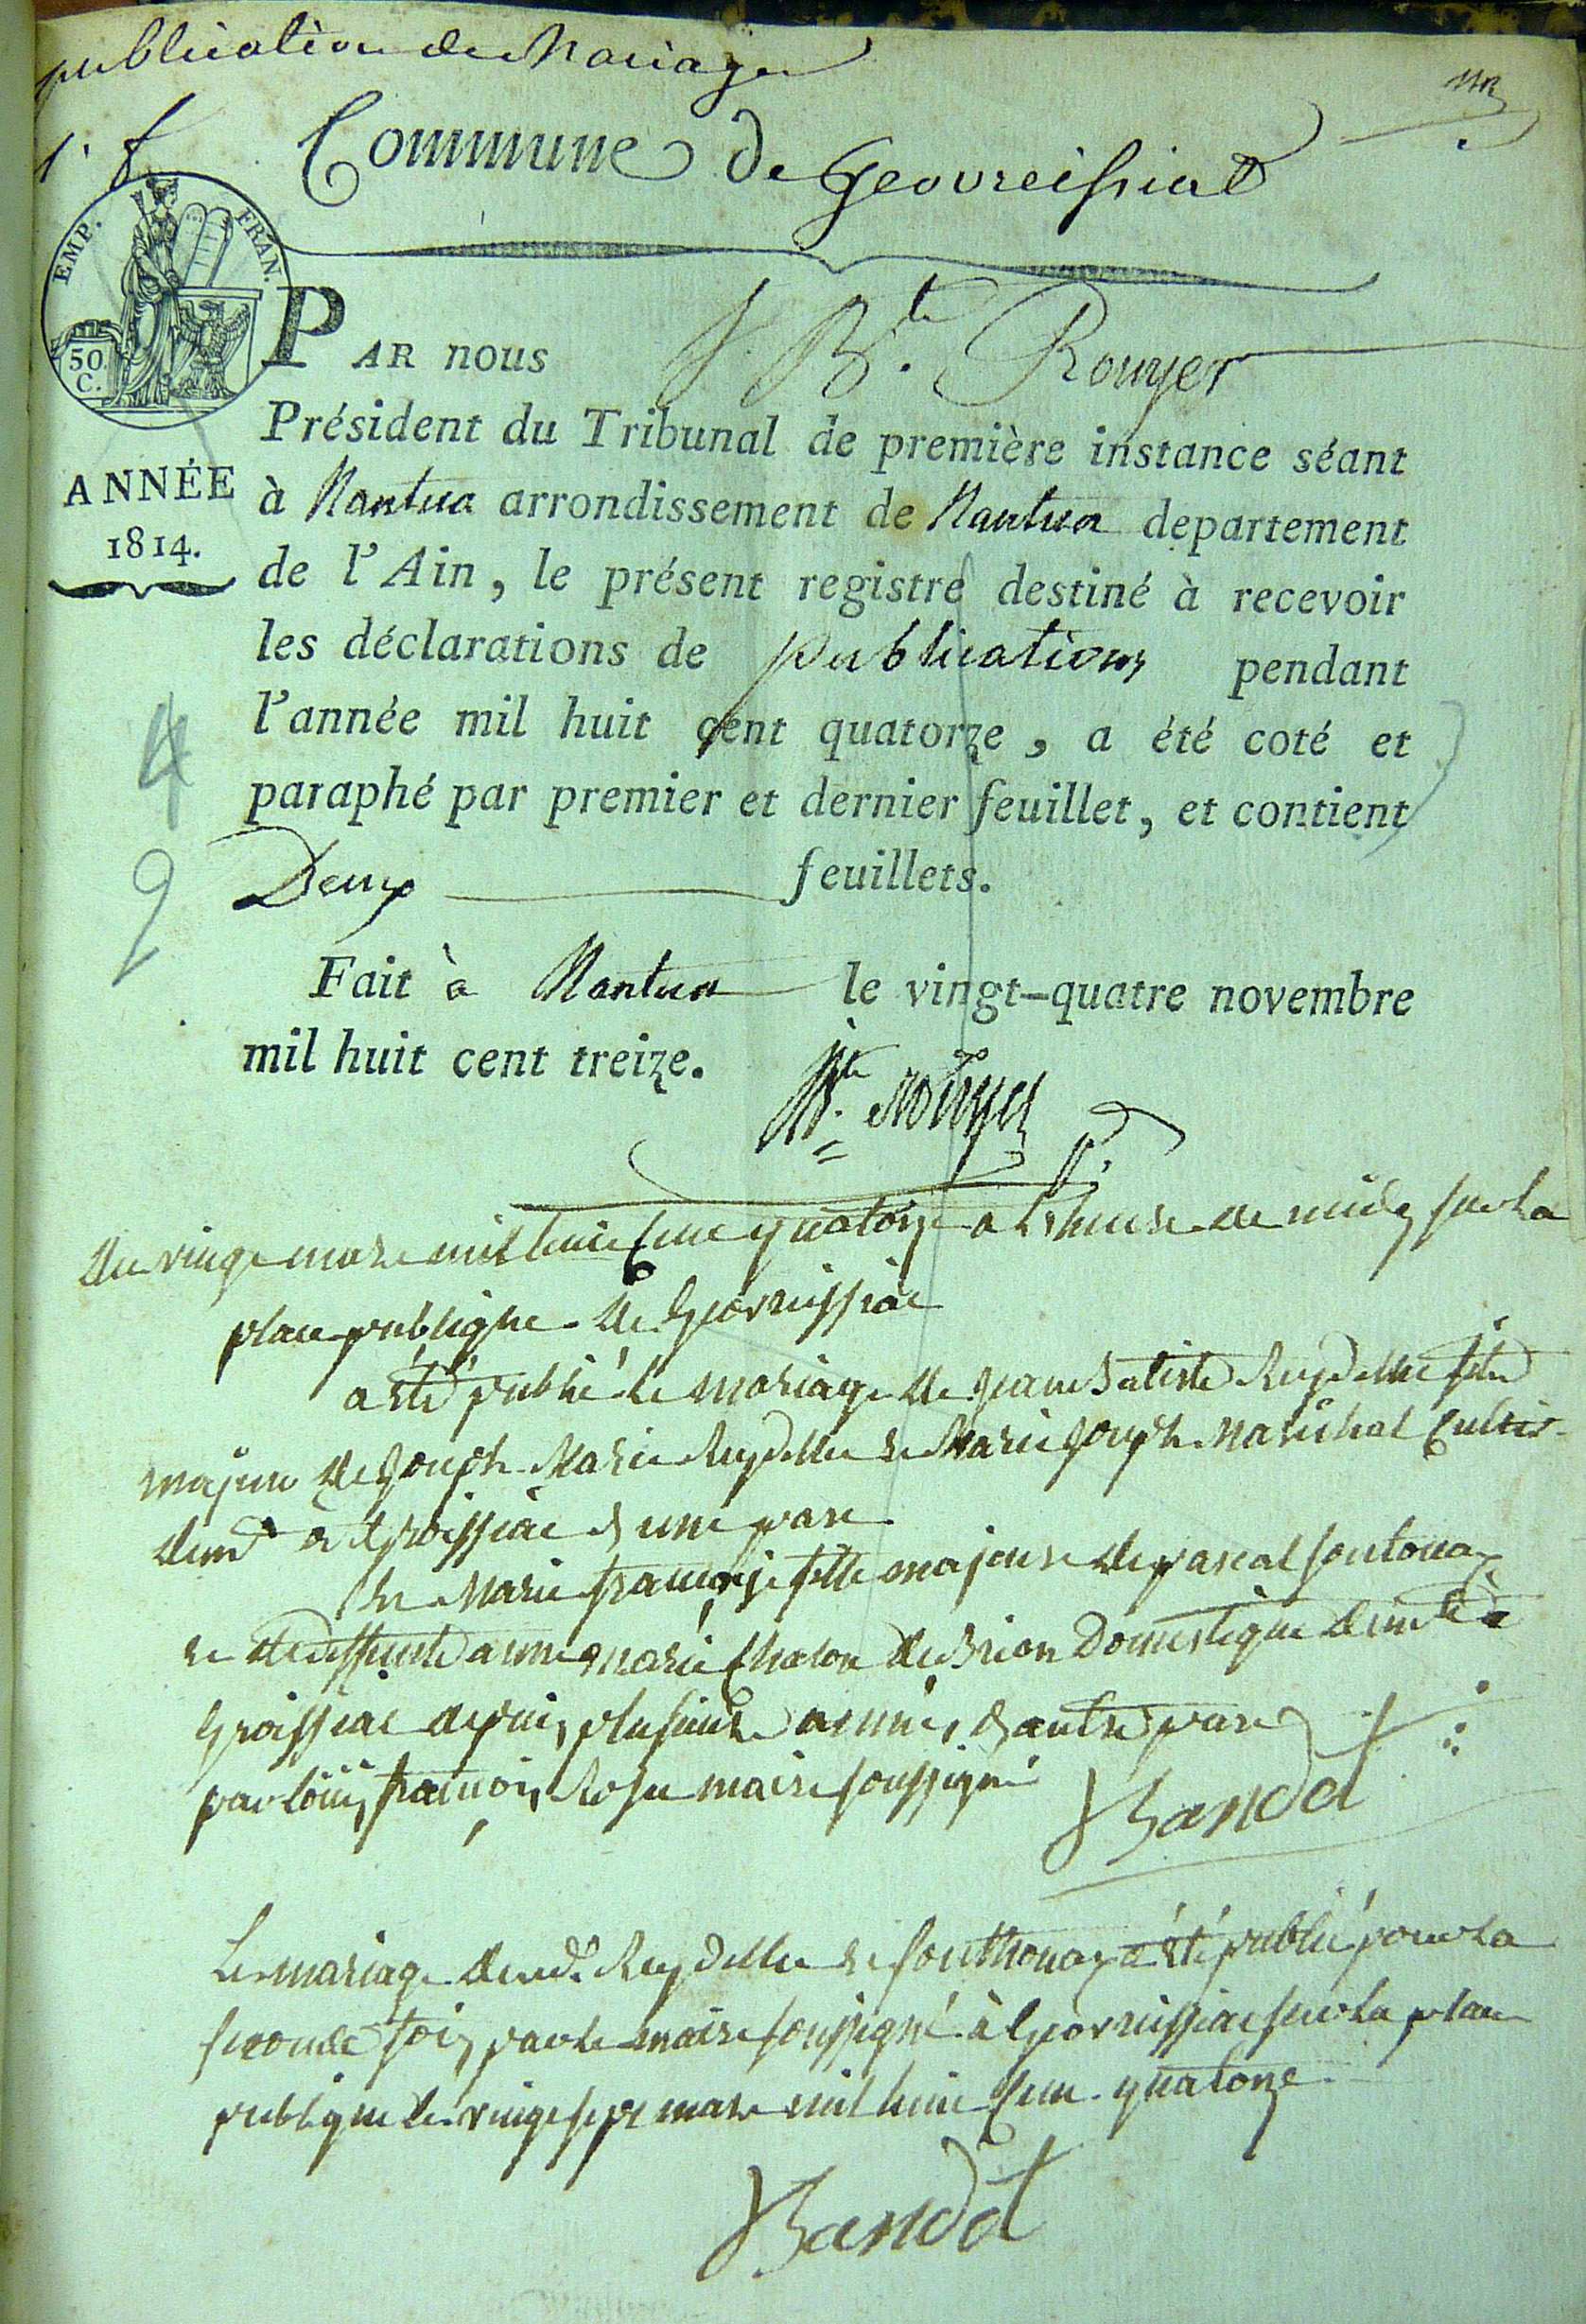 publication de Mariage
1.er f.
Commune de Geovreissiat
EMP. FRAN.
50 C.
PAR nous J. B.te Rouyer
Président du Tribunal de première instance séant
ANNÉE
1814.
à Nantua arrondissement de Nantua departement
de l'Ain, le présent registre destiné à recevoir
les déclarations de publications pendant
l'année mil huit cent quatorze, a été coté et
paraphé par premier et dernier feuillet, et contient
Deux feuillets.
4
2
Fait à Nantua le vingt-quatre novembre
mil huit cent treize.
B.te Rouyer p.
Du vingt mars mil huit cent quatorze a l'heure de midy sur la
place publique de Geovreissiat
a été publié le mariage de Jean Batiste Reydellet fils
majeur de Joseph Marie Reydellet et Marie Joseph Maréchal cultiv.
demt à Groissiat d'une part
et Marie françoise fille majeure de pascal fontonax
et de deffunte anne marie Chaton de Brion Domestique demte à
Groissiat depuis plusieurs années d'autre part
par loüis françois maire soussigné
Bandet
Le mariage dud. Reydellet et fonthonax a été publié pour la
seconde fois par le maire soussigné à Geovreissiat sur la place
publique le vingt sept mars mil huit cent quatorze
Bandet